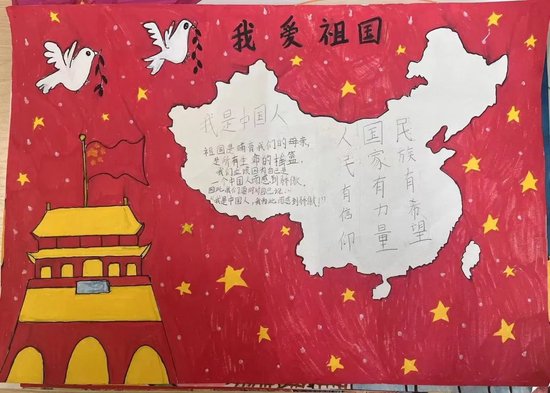 我爱祖国
我是中国人
祖国是哺育我们的母亲,
是所有生命的摇篮
我们应该因为自己是
一个中国人而感到骄傲。
因此,我们
"我是中国人,我为此而感到骄傲!"
民族有希望
国家有力量
人民有信仰